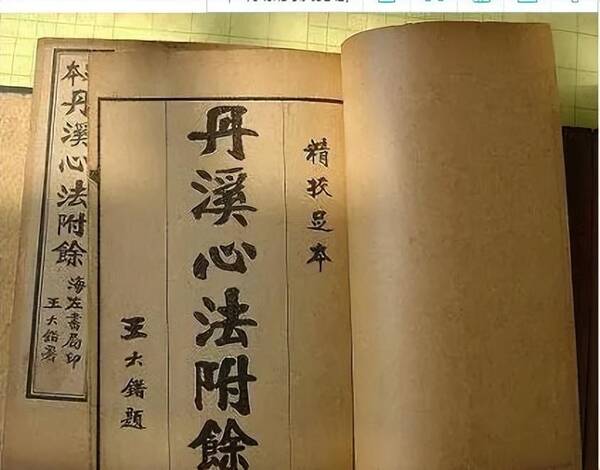 精挍足本
丹溪心法附餘
王大錯題
本丹溪心法附餘
海左書局印
王大錯署